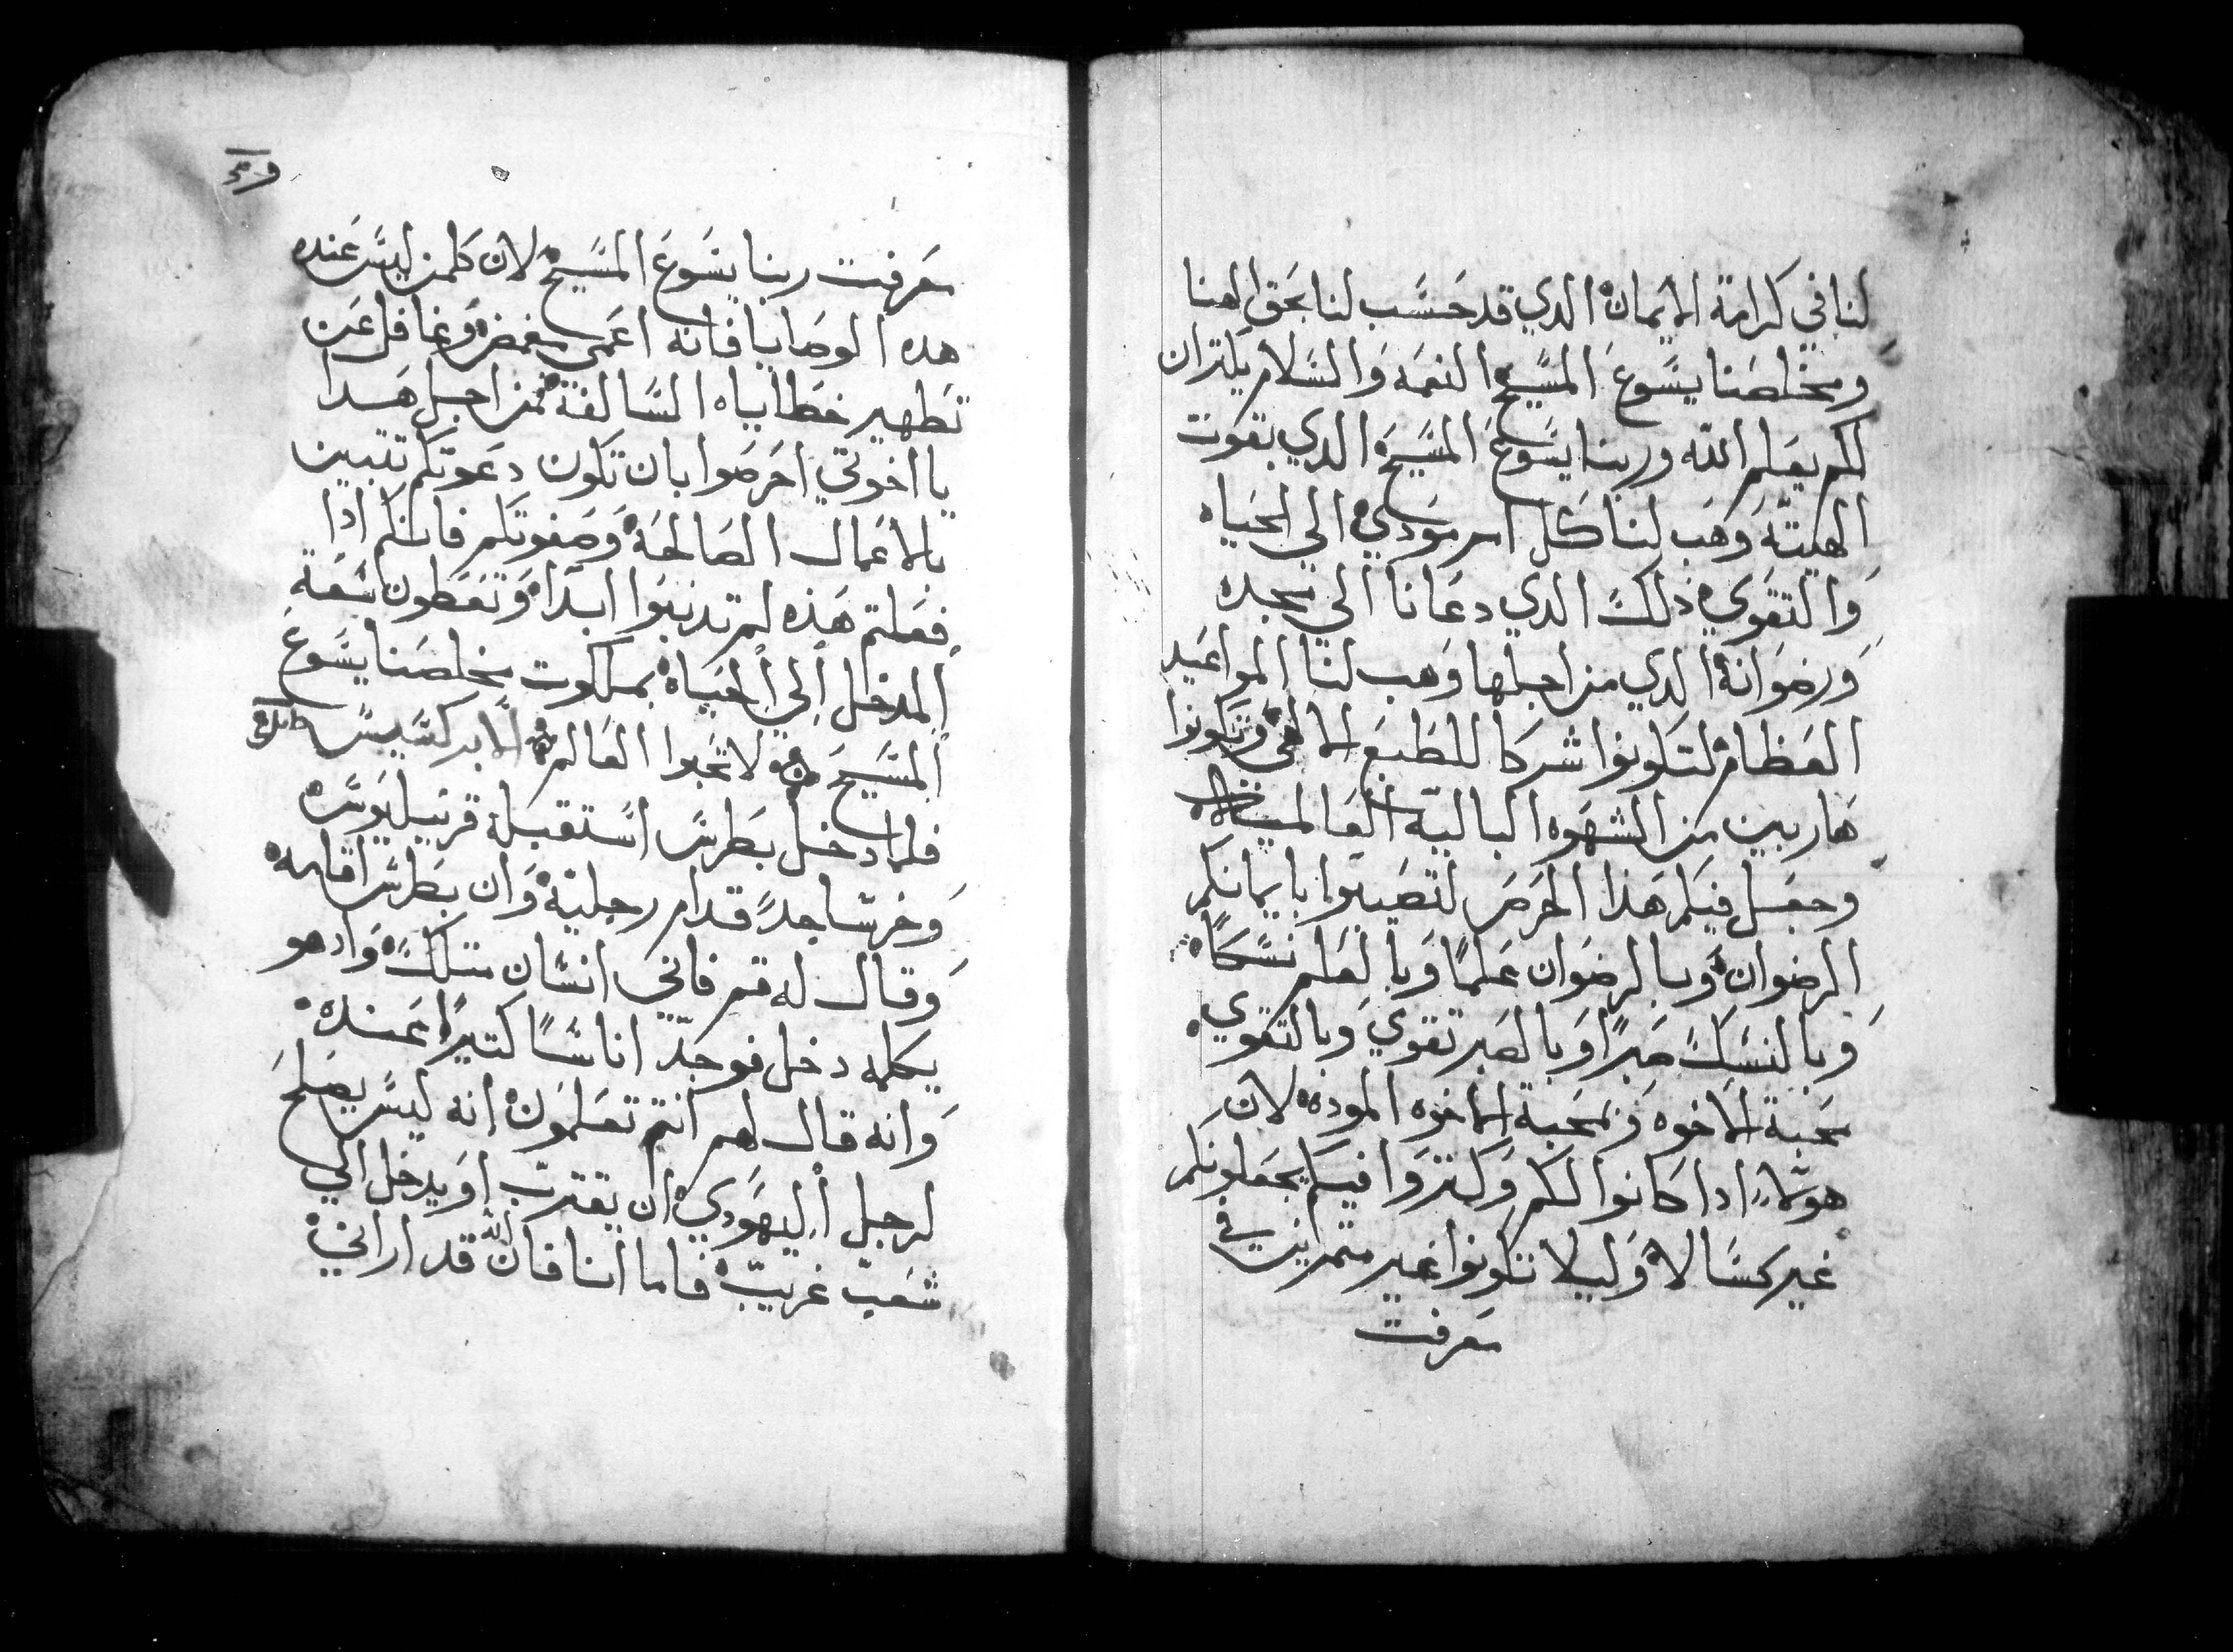 لنا في كرامة الايمان الدي قد حسب لنا بحق الهنا
ومخلصنا يسوع المسيح النعمه والسلام يكتران
لكم بعلم الله وربنا يسوع المسيح الدي بقوت
الهيته وهب لنا كل امر مودي الي الحياه
والتقوي ذلك الدي دعانا الي مجده
ورضوانه الدي من اجلها وهب لنا المواعيد
العظام لتكونوا شركا للطبع الالهي وتكونوا
هاربين من الشهوه الباليه العالميه
وجعل فيكم هذا الحرص لتصيبوا بايمانكم
الرضوان وبالرضوان علما وبالعلم نسكا
وبالنسك صبرا وبالصبر تقوي وبالتقوي
محبة الاخوه وبمحبة الاخوه الموده لان
هولاء ادا كانوا لكم وكتروا فيكم يجعلونكم
غير كسالا وليلا تكونوا غير متمرين في
معرفت
معرفت ربنا يسوع المسيح لان كلمن ليس عنده
هده الوصايا فانه اعمي مغمض وغافل عن
تطهير خطاياه السالفة فمن اجل هدا
يا اخوتي احرصوا بان تكون دعوتكم تتبين
بالاعمال الصالحة وصفوتكم فانكم ادا
فعلتم هذه لم تدنبوا ابدا وتعطون سعة
المدخل الي الحياه بملكوت مخلصنا يسوع
المسيح لا تحبوا العالم الابركسيس
فلما دخل بطرس استقبله قرنيليوس
وخر ساجدا قدام رجليه وان بطرس اقامه
وقال له قم فاني انسان متلك واد هو
يكلمه دخل فوجد اناسا كتيرا عنده
وانه قال لهم انتم تعلمون انه ليس يصلح
لرجل اليهودي ان يقترب او يدخل الي
شعب غريب فاما انا فان الله قد اراني